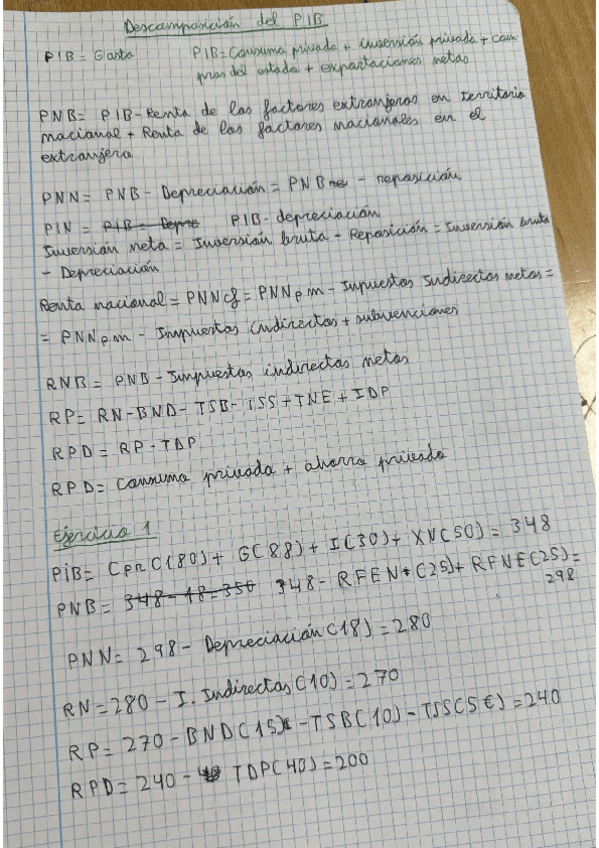 Descomposición del PIB
PIB = Gasto PIB = Consumo privado + inversión privada + com
pras del estado + exportaciones netas
PNB = PIB - Renta de los factores extranjeros en territorio
nacional + Renta de los factores nacionales en el
extranjero
PNN = PNB - Depreciación = PNB - reposición
PIN = PIB - Depre PIB - depreciación
Inversión neta = Inversión bruta - Reposición = Inversión bruta
- Depreciación
Renta nacional = PNNcf = PNNpm - Impuestos Indirectos netos =
= PNNpm - Impuestos indirectos + subvenciones
RNB = PNB - Impuestos indirectos netos
RP = RN - BND - TSB - TSS + TNE + IDP
RPD = RP - TDP
RPD = Consumo privado + ahorro privado
Ejercicio 1
PIB = CPR C(80) + G(88) + I(30) + XN(50) = 348
PNB = 348 - 18 = 350 348 - RFEN (25) + RFNE(25) =
298
PNN = 298 - Depreciación (18) = 280
RN = 280 - I. Indirectos (10) = 270
RP = 270 - BND(15) - TSB(10) - TSS(5€) = 240
RPD = 240 - TDP(40) = 200